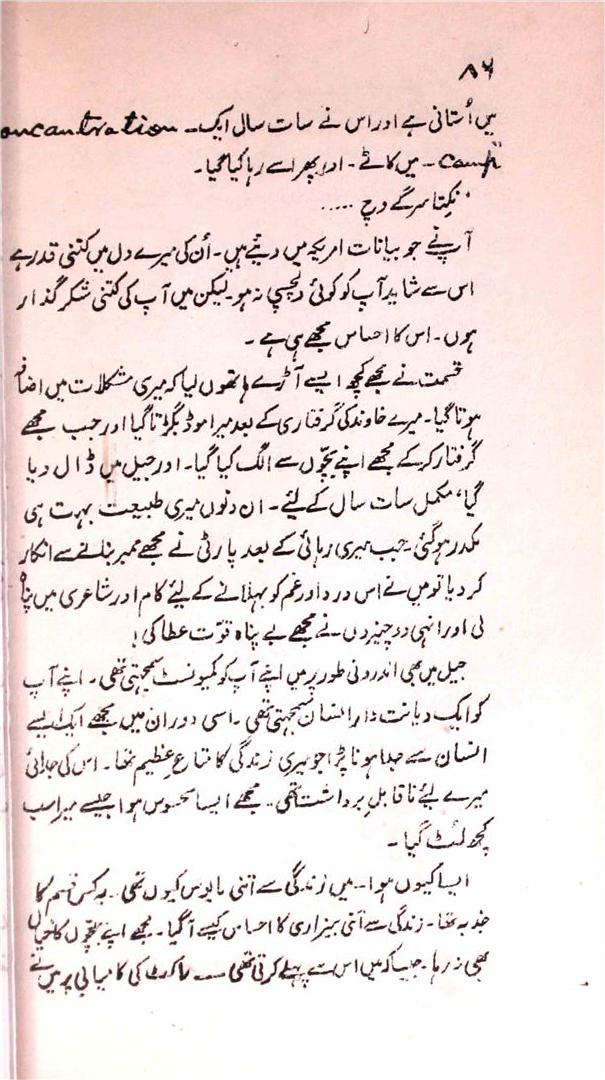 ۸۶
میں اُستانی ہے اور اس نے سات سال ایک ۔ oncantration
camp" ۔ میں کاٹے ۔ اور پھر اسے رہا کیا گیا۔
' نکِتا سرگے وچ .....
آپ نے جو بیانات امریکہ میں دیئے ہیں۔ اُن کی میرے دل میں کتنی قدر ہے
اس سے شاید آپ کو کوئی دلچسپی نہ ہو۔ لیکن میں آپ کی کتنی شکر گذار
ہوں۔ اس کا احساس مجھے ہی ہے ۔
قسمت نے مجھے کچھ ایسے آڑے ہاتھوں لیا کہ میری مشکلات میں اضافہ
ہوتا گیا۔ میرے خاوند کی گرفتاری کے بعد میرا موڈ بگڑتا گیا اور جب مجھے
گرفتار کر کے مجھے اپنے بچّوں سے الگ کیا گیا۔ اور جیل میں ڈال دیا
گیا، مکمل سات سال کے لیئے ۔ ان دنوں میری طبیعت بہت ہی
مکدر ہو گئی۔ جب میری رہائی کے بعد پارٹی نے مجھے ممبر بنانے سے انکار
کر دیا تو میں نے اس درد اور غم کو بہلانے کے لیئے کام اور شاعری میں پناہ
لی اور انہی دو چیزوں ۔ نے مجھے بے پناہ قوّت عطا کی!
جیل میں بھی اندرونی طور پر میں اپنے آپ کو کمیونسٹ سمجھتی تھی ۔ اپنے آپ
کو ایک دیانت دار انسان سمجھتی تھی ۔ اسی دوران میں مجھے ایک ایسے
انسان سے جدا ہونا پڑا جو میری زندگی کا متاعِ عظیم تھا۔ اس کی جدائی
میرے لئے ناقابلِ برداشت تھی ۔ مجھے ایسا محسوس ہوا جیسے میرا سب
کچھ لُٹ گیا ۔
ایسا کیوں ہوا ۔ میں زندگی سے اتنی مایوس کیوں تھی ۔ یہ کس قسم کا
جذبہ تھا۔ زندگی سے اتنی بیزاری کا احساس کیسے آ گیا۔ مجھے اپنے بچّوں کا خیال
بھی نہ رہا۔ جیسا کہ میں اس سے پہلے کرتی تھی ۔۔ راکٹ کی کامیابی پر میں نے